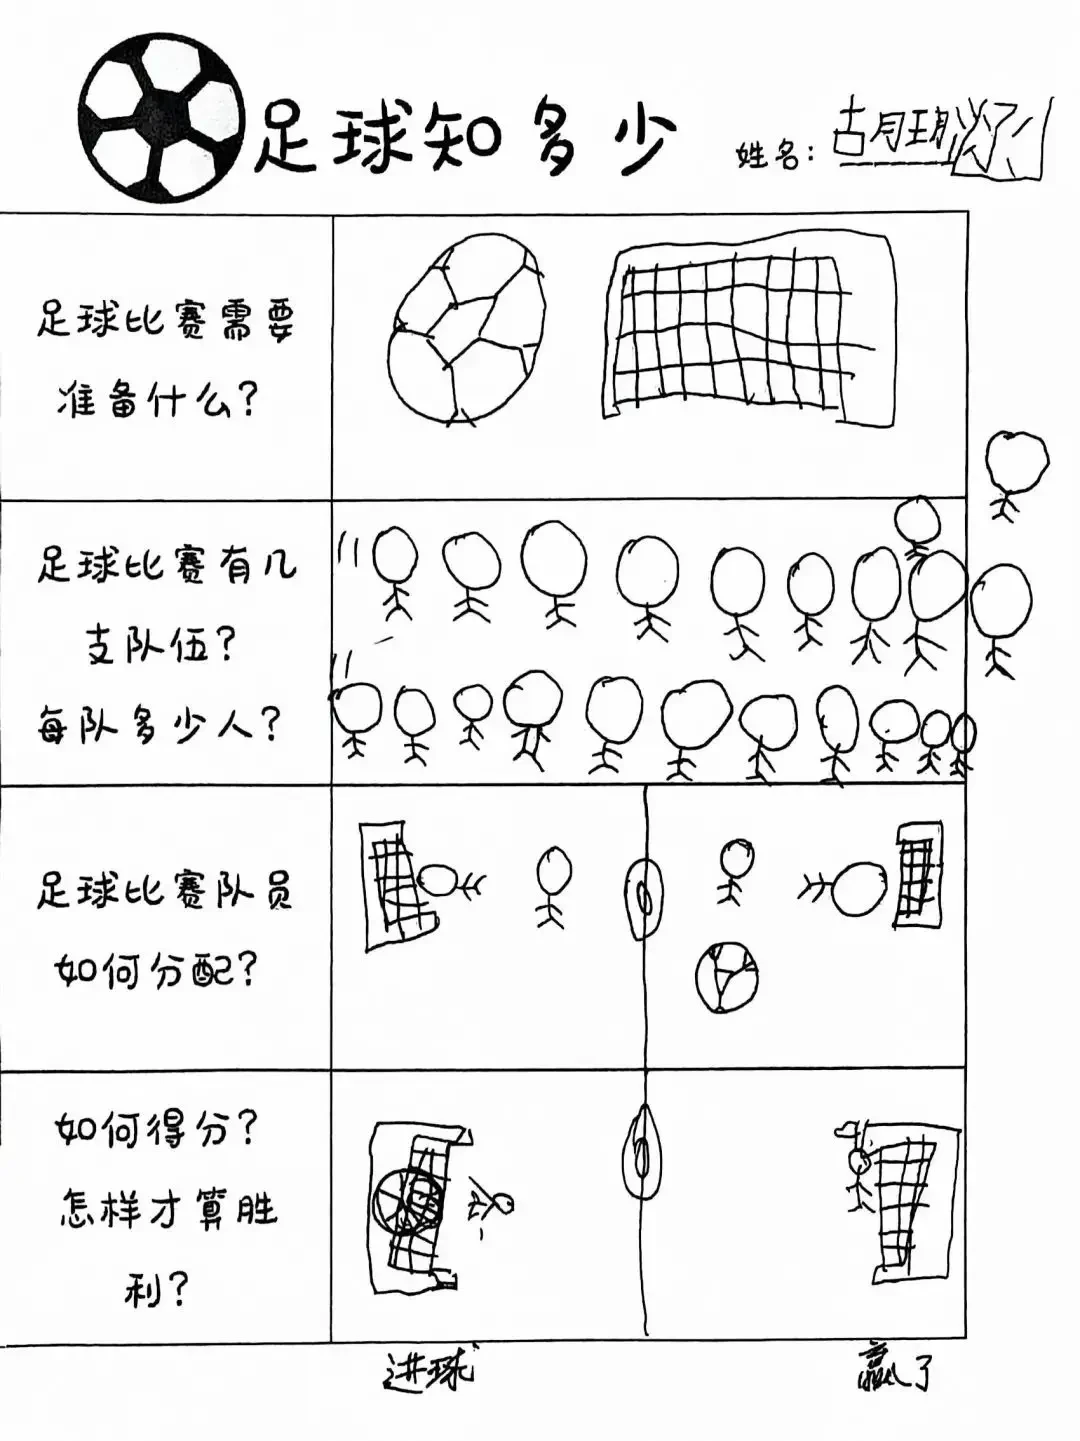 足球知多少
姓名：
足球比赛需要
准备什么？
足球比赛有几
支队伍？
每队多少人？
足球比赛队员
如何分配？
如何得分？
怎样才算胜
利？
进球
赢了